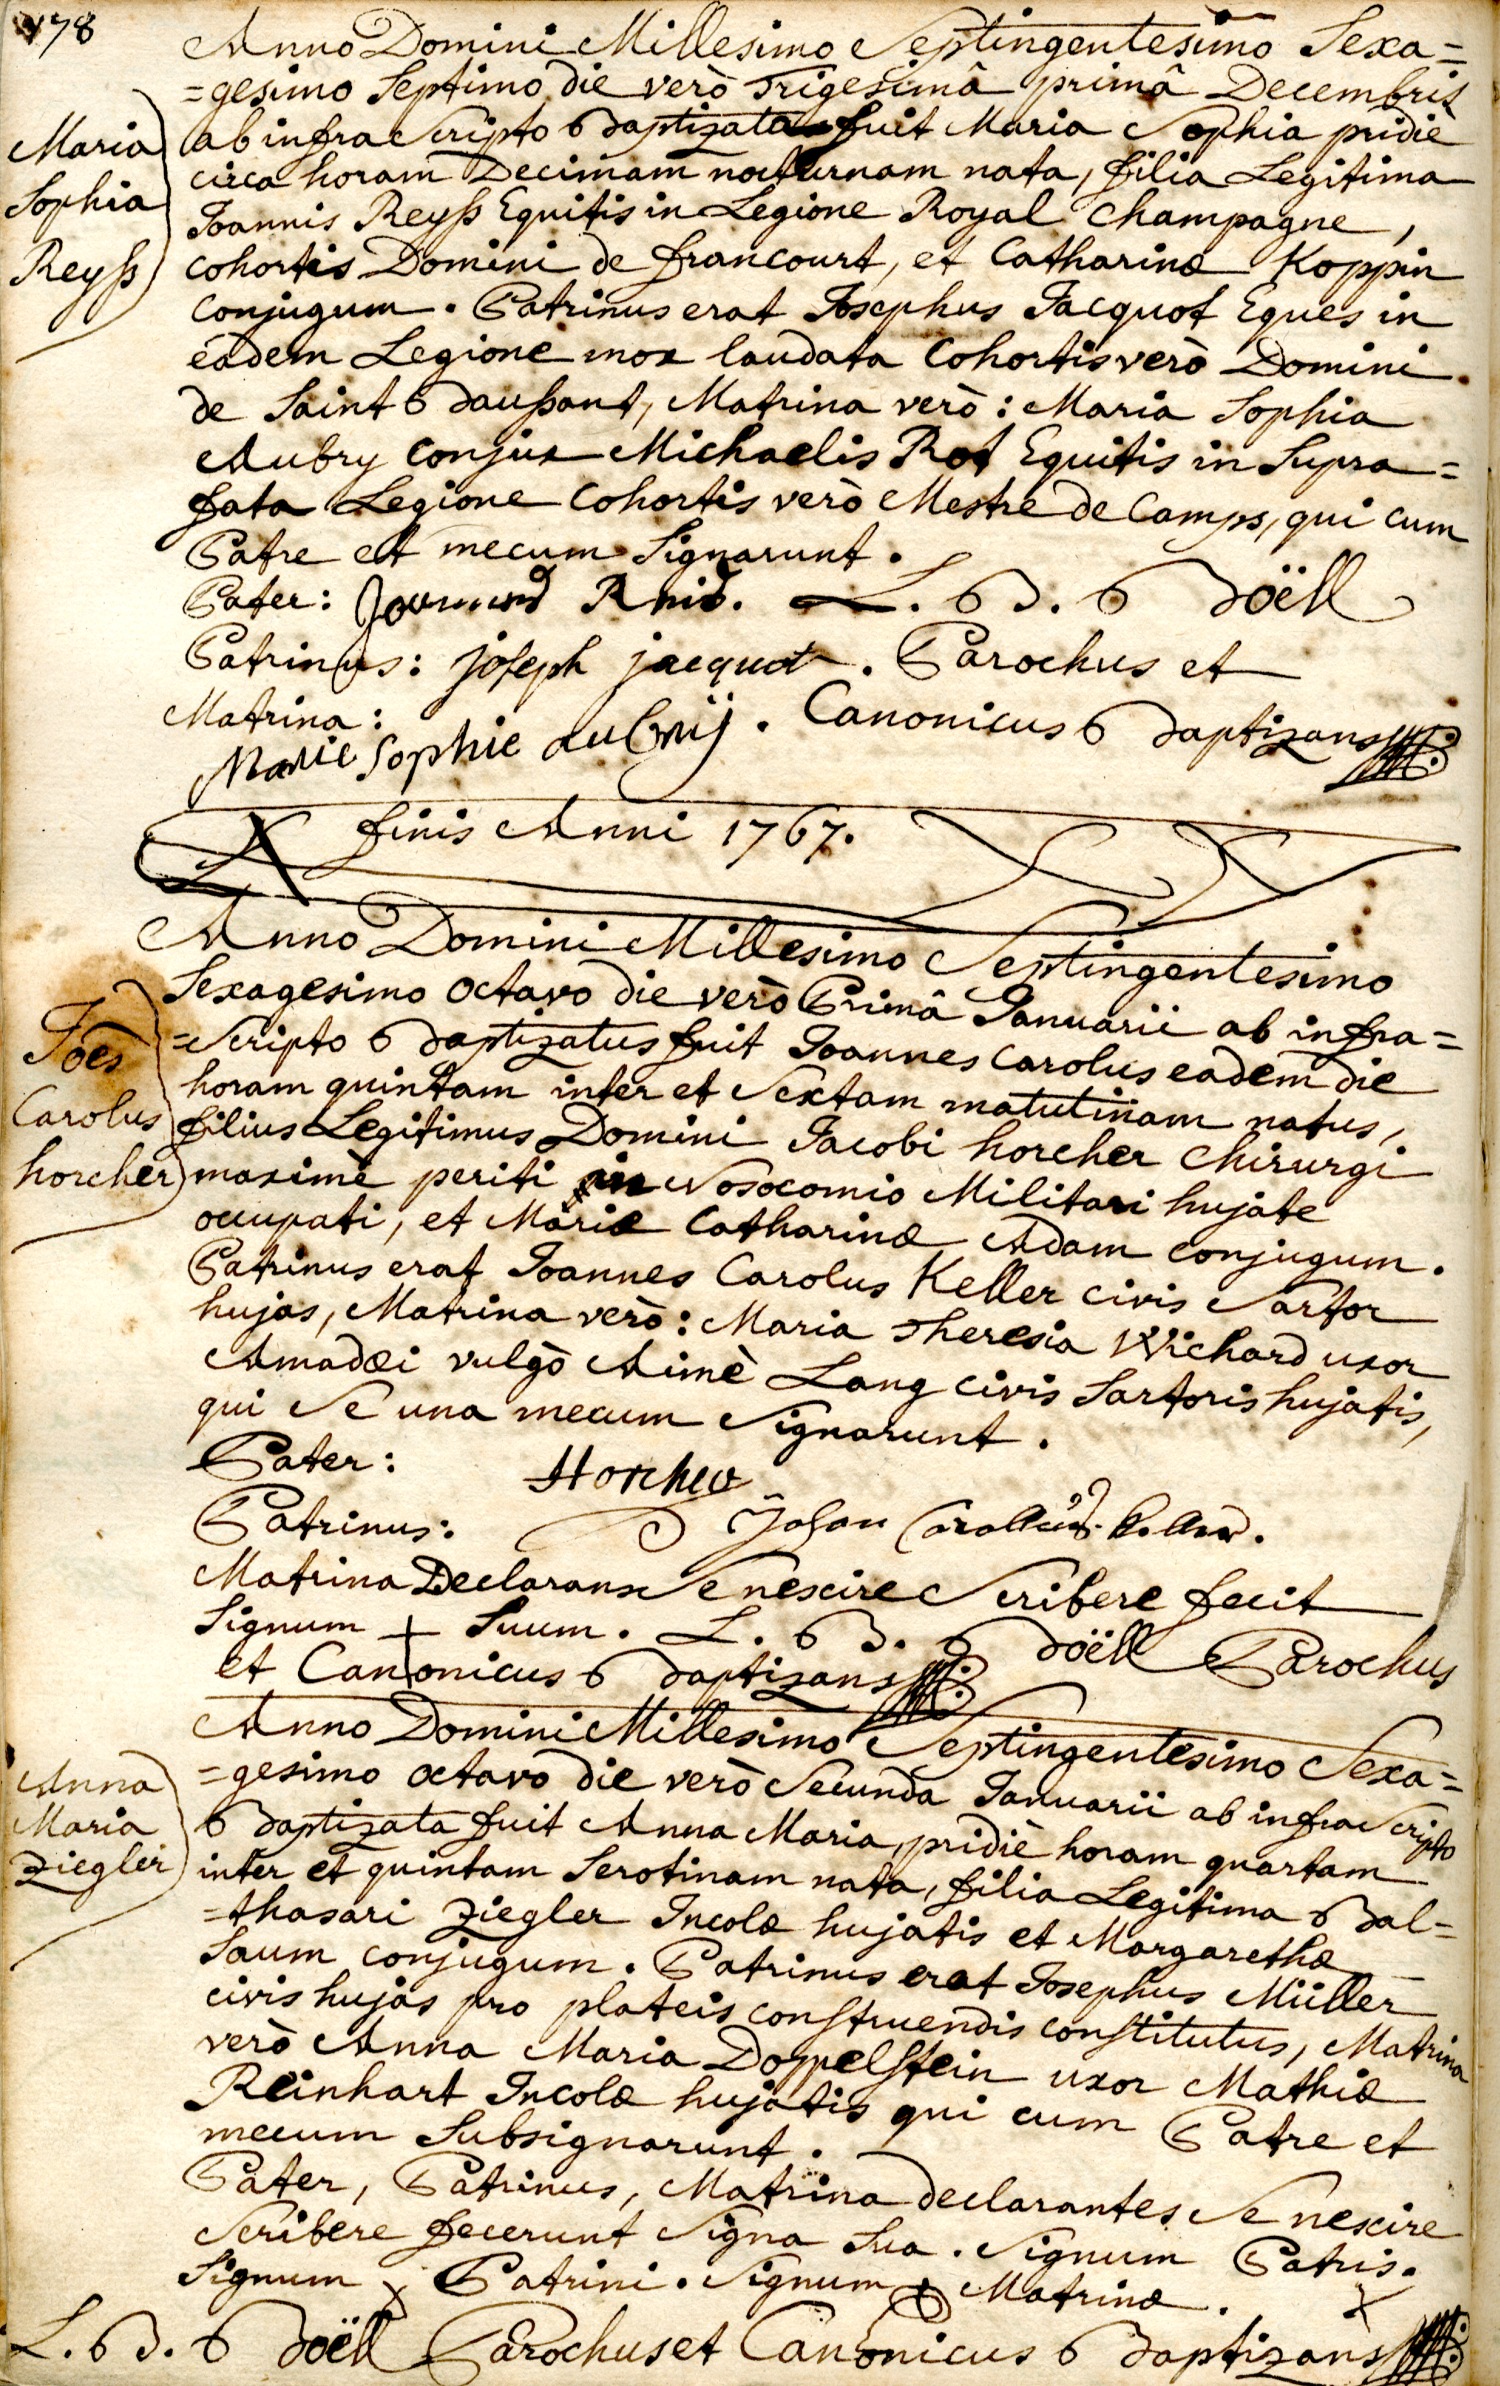 178
Anno Domini Millesimo Septingentesimo Sexa=
=gesimo Septimo die verò Trigesimâ primâ Decembris
Maria Sophia Reyß
ab infra Scripto Baptizata fuit Maria Sophia pridiè
circa horam Decimam nocturnam nata, filia Legitima
Joannis Reyß Equitis in Legione Royal Champagne,
cohortis Domini de francourt, et Catharinæ Koppin
conjugum. Patrinus erat Josephus Jacquot Eques in
eâdem Legione mox laudata Cohortis verò Domini
de Saint Baußant, Matrina verò: Maria Sophia
Aubry conjux Michaelis Rot Equitis in Supra=
fata Legione Cohortis verò Mestre de Camps, qui cum
Patre et mecum Signarunt.
Pater: L. B. Böëll
Patrinus: joseph jacquot. Parochus et
Matrina: Canonicus Baptizans
Marie Sophie aubrij.
finis Anni 1767.
Anno Domini Millesimo Septingentesimo
Sexagesimo Octavo die verò Primâ Januarii ab infra=
Joês Carolus horcher
=Scripto Baptizatus fuit Joannes Carolus eadem die
horam quintam inter et Sextam matutinam natus,
filius Legitimus Domini Jacobi horcher Chirurgi
maximè periti in Nosocomio Militari hujate
occupati, et Mariæ Catharinæ Adam conjugum.
Patrinus erat Joannes Carolus Keller civis Sartor
hujas, Matrina verò: Maria Theresia Wichard uxor
Amadæi vulgò Aimè Lang civis Sartoris hujatis,
qui Se una mecum Signarunt.
Pater: Horcher
Patrinus: Johan Carollus Keller.
Matrina Declarans Se nescire Scribere fecit
Signum + Suum. L. B. Böëll Parochus
et Canonicus Baptizans
Anno Domini Millesimo Septingentesimo Sexa=
=gesimo octavo die verò Secunda Januarii ab infra Scripto
Anna Maria Ziegler
Baptizata fuit Anna Maria, pridiè horam quartam
inter et quintam Serotinam nata, filia Legitima Bal=
=thasari Ziegler Incolæ hujatis et Margarethæ
Saum conjugum. Patrinus erat Josephus Müller
civis hujas pro plateis construendis constitutus, Matrina
verò Anna Maria Doppelstein uxor Mathiæ
Reinhart Incolæ hujatis qui cum Patre et
mecum Subsignarunt.
Pater, Patrinus, Matrina declarantes Se nescire
Scribere fecerunt Signa Sua. Signum Patris. x
Signum x Patrini. Signum + Matrinæ.
L. B. Böëll Parochus et Canonicus Baptizans